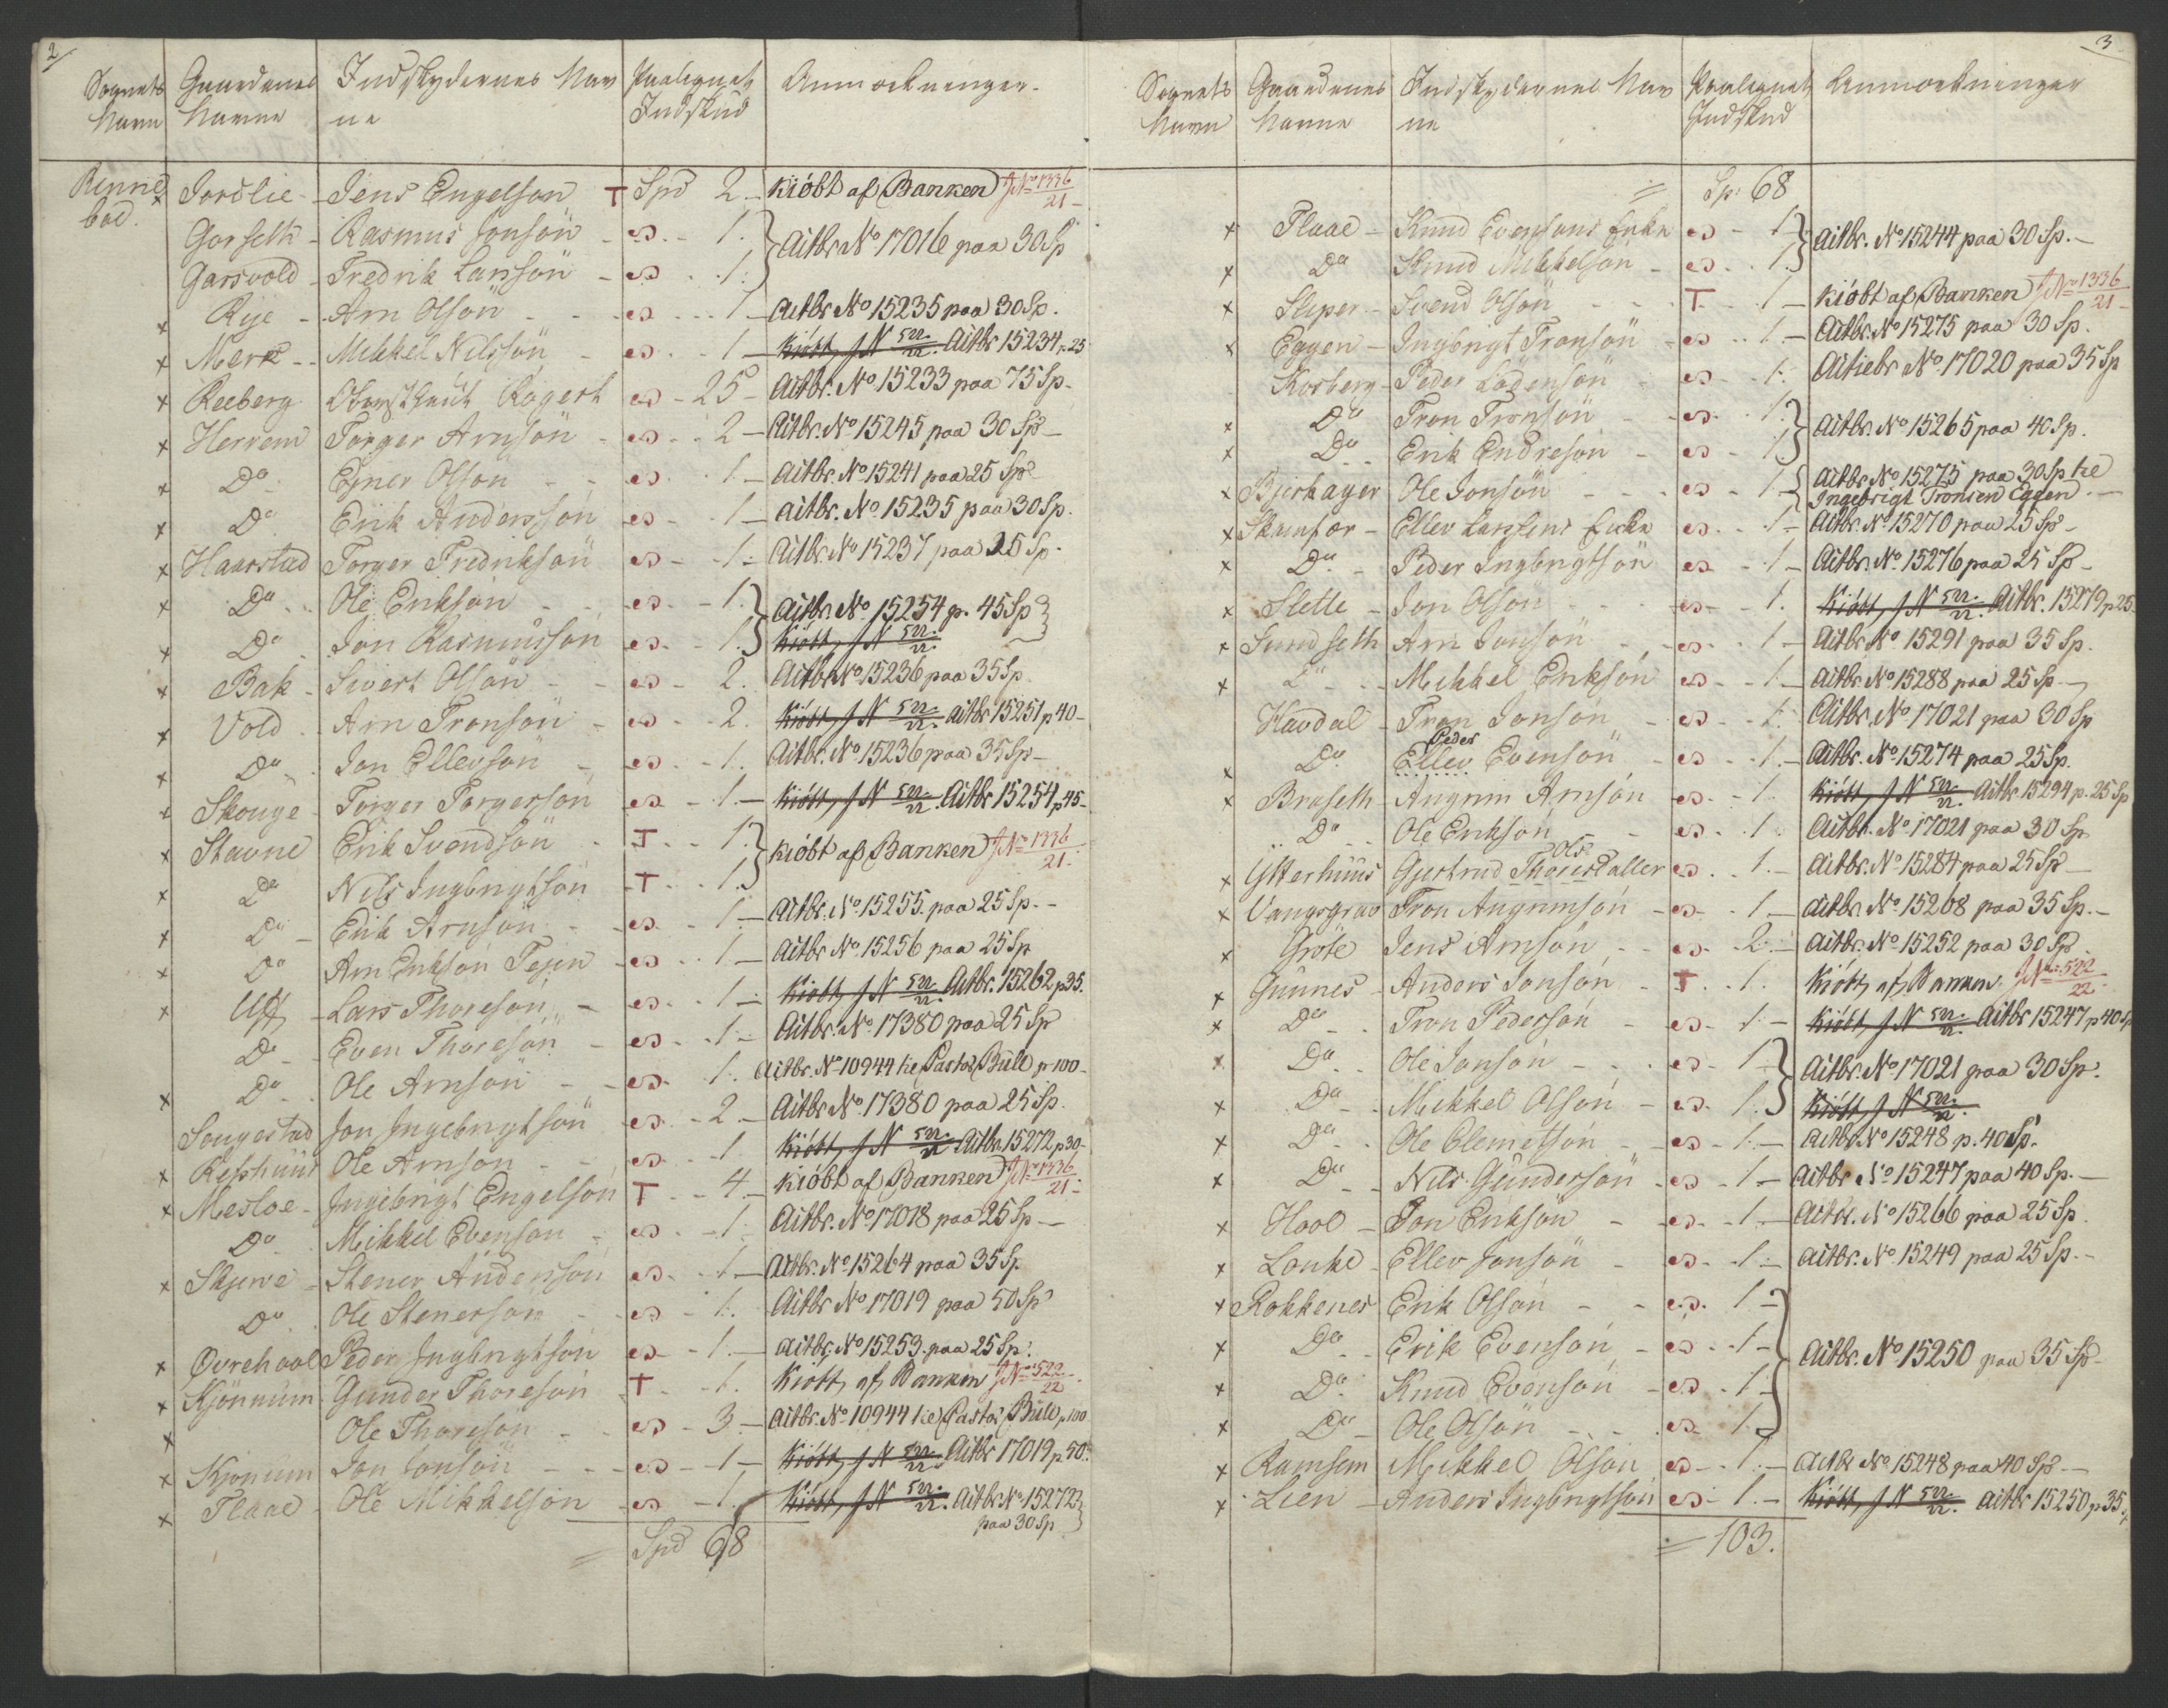 2
Sognets Navn | Gaardenes Navne | Indskydernes Navne | Paalignet Indskud | Anmærkninger
Rennebod
x Jordlie - Jens Engelsøn T Spd 2 - Kiöbt af Banken J No 1336/21
Gorseth - Rasmus Jonsön - 1. } Actbr No 17016 paa 30 Sp
Garsvold - Fredrik Larssön - 1. }
x Rye - Arn Olsön - 1 - Actbr No 15235 paa 30 Sp.
x Merk - Mikkel Nilssön - 1 - Kiöbt, J N 522/22. Actbr 15234 p 25
x Reeberg Oberstleüt Rogert - 25 - Actbr. No 15233 paa 75 Sp.
x Herrem Torger Arnsön - 2 - Actbr. No 15245 paa 30 Sp -
x Do Ejner Olsön - 1 - Actbr. No 15241 paa 25 Sp
x Do Erik Anderssön - 1 - Actbr. No 15235 paa 30 Sp.
x Haarstad Torger Fredriksön - 1 - Actbr No 15237 paa 25 Sp.
x Do Ole Eriksön - 1. } Actbr. No 15254 p. 45 Sp }
x Do Jon Rasmussön - 1. } Kiöbt, J N 522/22.
x Bak - Sivert Olsön - 2. Actbr No 15236 paa 35 Sp
x Vold - Arn Tronsön - 2. Kiöbt, J N 522/22. Actbr 15251 p 40 -
x Do Jon Ellevsön - 1. Actbr. No 15236 paa 35 Sp -
x Skouge - Torger Torgersön - 1. - Kiöbt, J N 522/22. Actbr 15254 p 45 -
x Stavne Erik Svendsön T 1. } Kiöbt af Banken J No 1336/21.
x Do Nils Ingbrigtsön T 1. }
x Do - Erik Arnsön - 1. - Actbr. No 15255 paa 25 Sp. -
x Do Arn Eriksön Tejen - 1 - Actbr No 15256 paa 25 Sp
x Uff - Lars Thoresön - 1 - Kiöbt, J N 522/22. Actbr. 15262 p 35.
Do - Even Thoresön - 1 - Actbr. No 17380 paa 25 Sp
x Do - Ole Arnsön - 1. Actbr. No 10944 he Pastor Bull p 100 -
Sougestad Jon Ingebrigtsön - 2 - Actbr No 17380 paa 25 Sp.
x Reshuus Ole Arnsön - 1 Kiöbt, J N 522/22 Actbr. 15272 p 30 -
x Mesloe - Ingebrigt Engelsön T 4. - Kiöbt af Banken J No 1336/21.
Do Mikkel Evensön - 1. Actbr. No 17018 paa 25 Sp -
x Skjerve - Stener Andersön - 1. - Actbr. No 15264 paa 35 Sp
Do Ole Stenersön - 1. Actbr No 17019 paa 50 Sp
x Qvrehool Peder Ingbrigtsön - 1. - Actbr. No 15253 paa 25 Sp.
x Kjönnüm Gunder Thoresön T 1. Kiöbt, af, Banken J No 522/22.
x Ole Thoresön - 3 - Actbr. No 10944 he Pastor Bull p 100
x Kjönnüm Jon Jonsön - 1 - Kiöbt, J N 522/22. Actbr 17019 p 50.
x Flaae - Ole Mikkelsön - 1. Kiöbt, J N 522/22. Actbr No 15272 }
paa 30 Sp }
= Spd 68
3
Sognets Navn | Gaardenes Navne | Indskydernes Navne | Paalignet Indskud | Anmærkninger
= Sp: 68
x Flaae - Knud Evensøns Enke - 1 } Actbr. No 15244 paa 30 Sp. -
x Do Knud Mikkelsön - 1. }
x Sliper - Svend Olsön T 1 - Kiöbt af Banken J No 1336/21 -
x Eggen - Ingbrigt Tronsön - 1 - Actbr. No 15275 paa 30 Sp.
Korberg - Peder Lodensön - 1. Actiebr No 17020 paa 35 Sp
x Do Tron Tronsön - 1. } Actbr. No 15265 paa 40 Sp.
x Do Erik Endresön - 1 }
x Bjerkager Ole Jonsön - 1 - { Actbr No 15275 paa 30 Sp he
Ingebrigt Tronsen Eggen. -
x Skamfær - Ellev Larssens Enke - 1 - Actbr. No 15270 paa 25 Sp -
x Do - Peder Ingbrigtsön - 1 - Actbr. No 15276 paa 25 Sp -
x Slette - Jon Olsön - 1. Kiöbt, J N 522/22. Actbr. 15279 p 25
x Sundseth Arn Jonsön - 1 - Actbr No 15291 paa 35 Sp.
x Do - Mikkel Eriksön - 1 - Actbr. No 15288 paa 25 Sp -
Havdal - Tron Jonsön - 1. Actbr. No 17021 paa 30 Sp
Peder
x Do Ellev Evensön - 1. - Actbr. No 15274 paa 25 Sp.
x Braseth - Angrim Arnsön - 1. Kiöbt, J N 522/22. Actbr 15294 p. 25 Sp
Do Ole Eriksön - 1. Actbr. No 17021 paa 30 Sp.
Ols
x Ytterhuus Gjertrud Thoresdatter - 1. - Actbr. No 15284 paa 25 Sp -
x Vangsgrav Tron Angrimsön - 1 - Actbr. No 15268 paa 35 Sp. -
x Gröte Jens Arnsön - 2. - Actbr. No 15252 paa 30 Sp
x Gunnes - Anders Jonsön T 1. Kiöbt, af, Banken. J No 522/22.
x Do - Tron Pedersön - 1. - Kiöbt, J N 522/22. Actbr 15247 p 40 Sp
x Do - Ole Jonsön - 1. } Actbr. No 17021 paa 30 Sp.
x Do - Mikkel Olsön - 1. } Kiöbt, J N 522/22.
x Do - Ole Clemetsön - 1. - Actbr No 15248 p. 40 Sp.
x Do - Nils Gundersön - 1 - Actbr No 15247 paa 40 Sp. -
x Hool - Jon Eriksön - 1 - Actbr. No 15266 paa 25 Sp.
x Lonke - Ellev Jonsön - 1 - Actbr. No 15249 paa 25 Sp. -
x Rokkenes Erik Olsön - 1 - }
x Do - Erik Evensön - 1 - } Actbr. No 15250 paa 35 Sp -
x Do Knud Evensön - 1 - }
x Do - Ole Olsön - 1 }
x Ramsem Mikkel Olsön - 1. - Actbr No 15248 paa 40 Sp -
x Lien - Anders Ingbrigtsön - 1. - Kiöbt, J N 522/22. Actbr 15250 p 35
= 103.